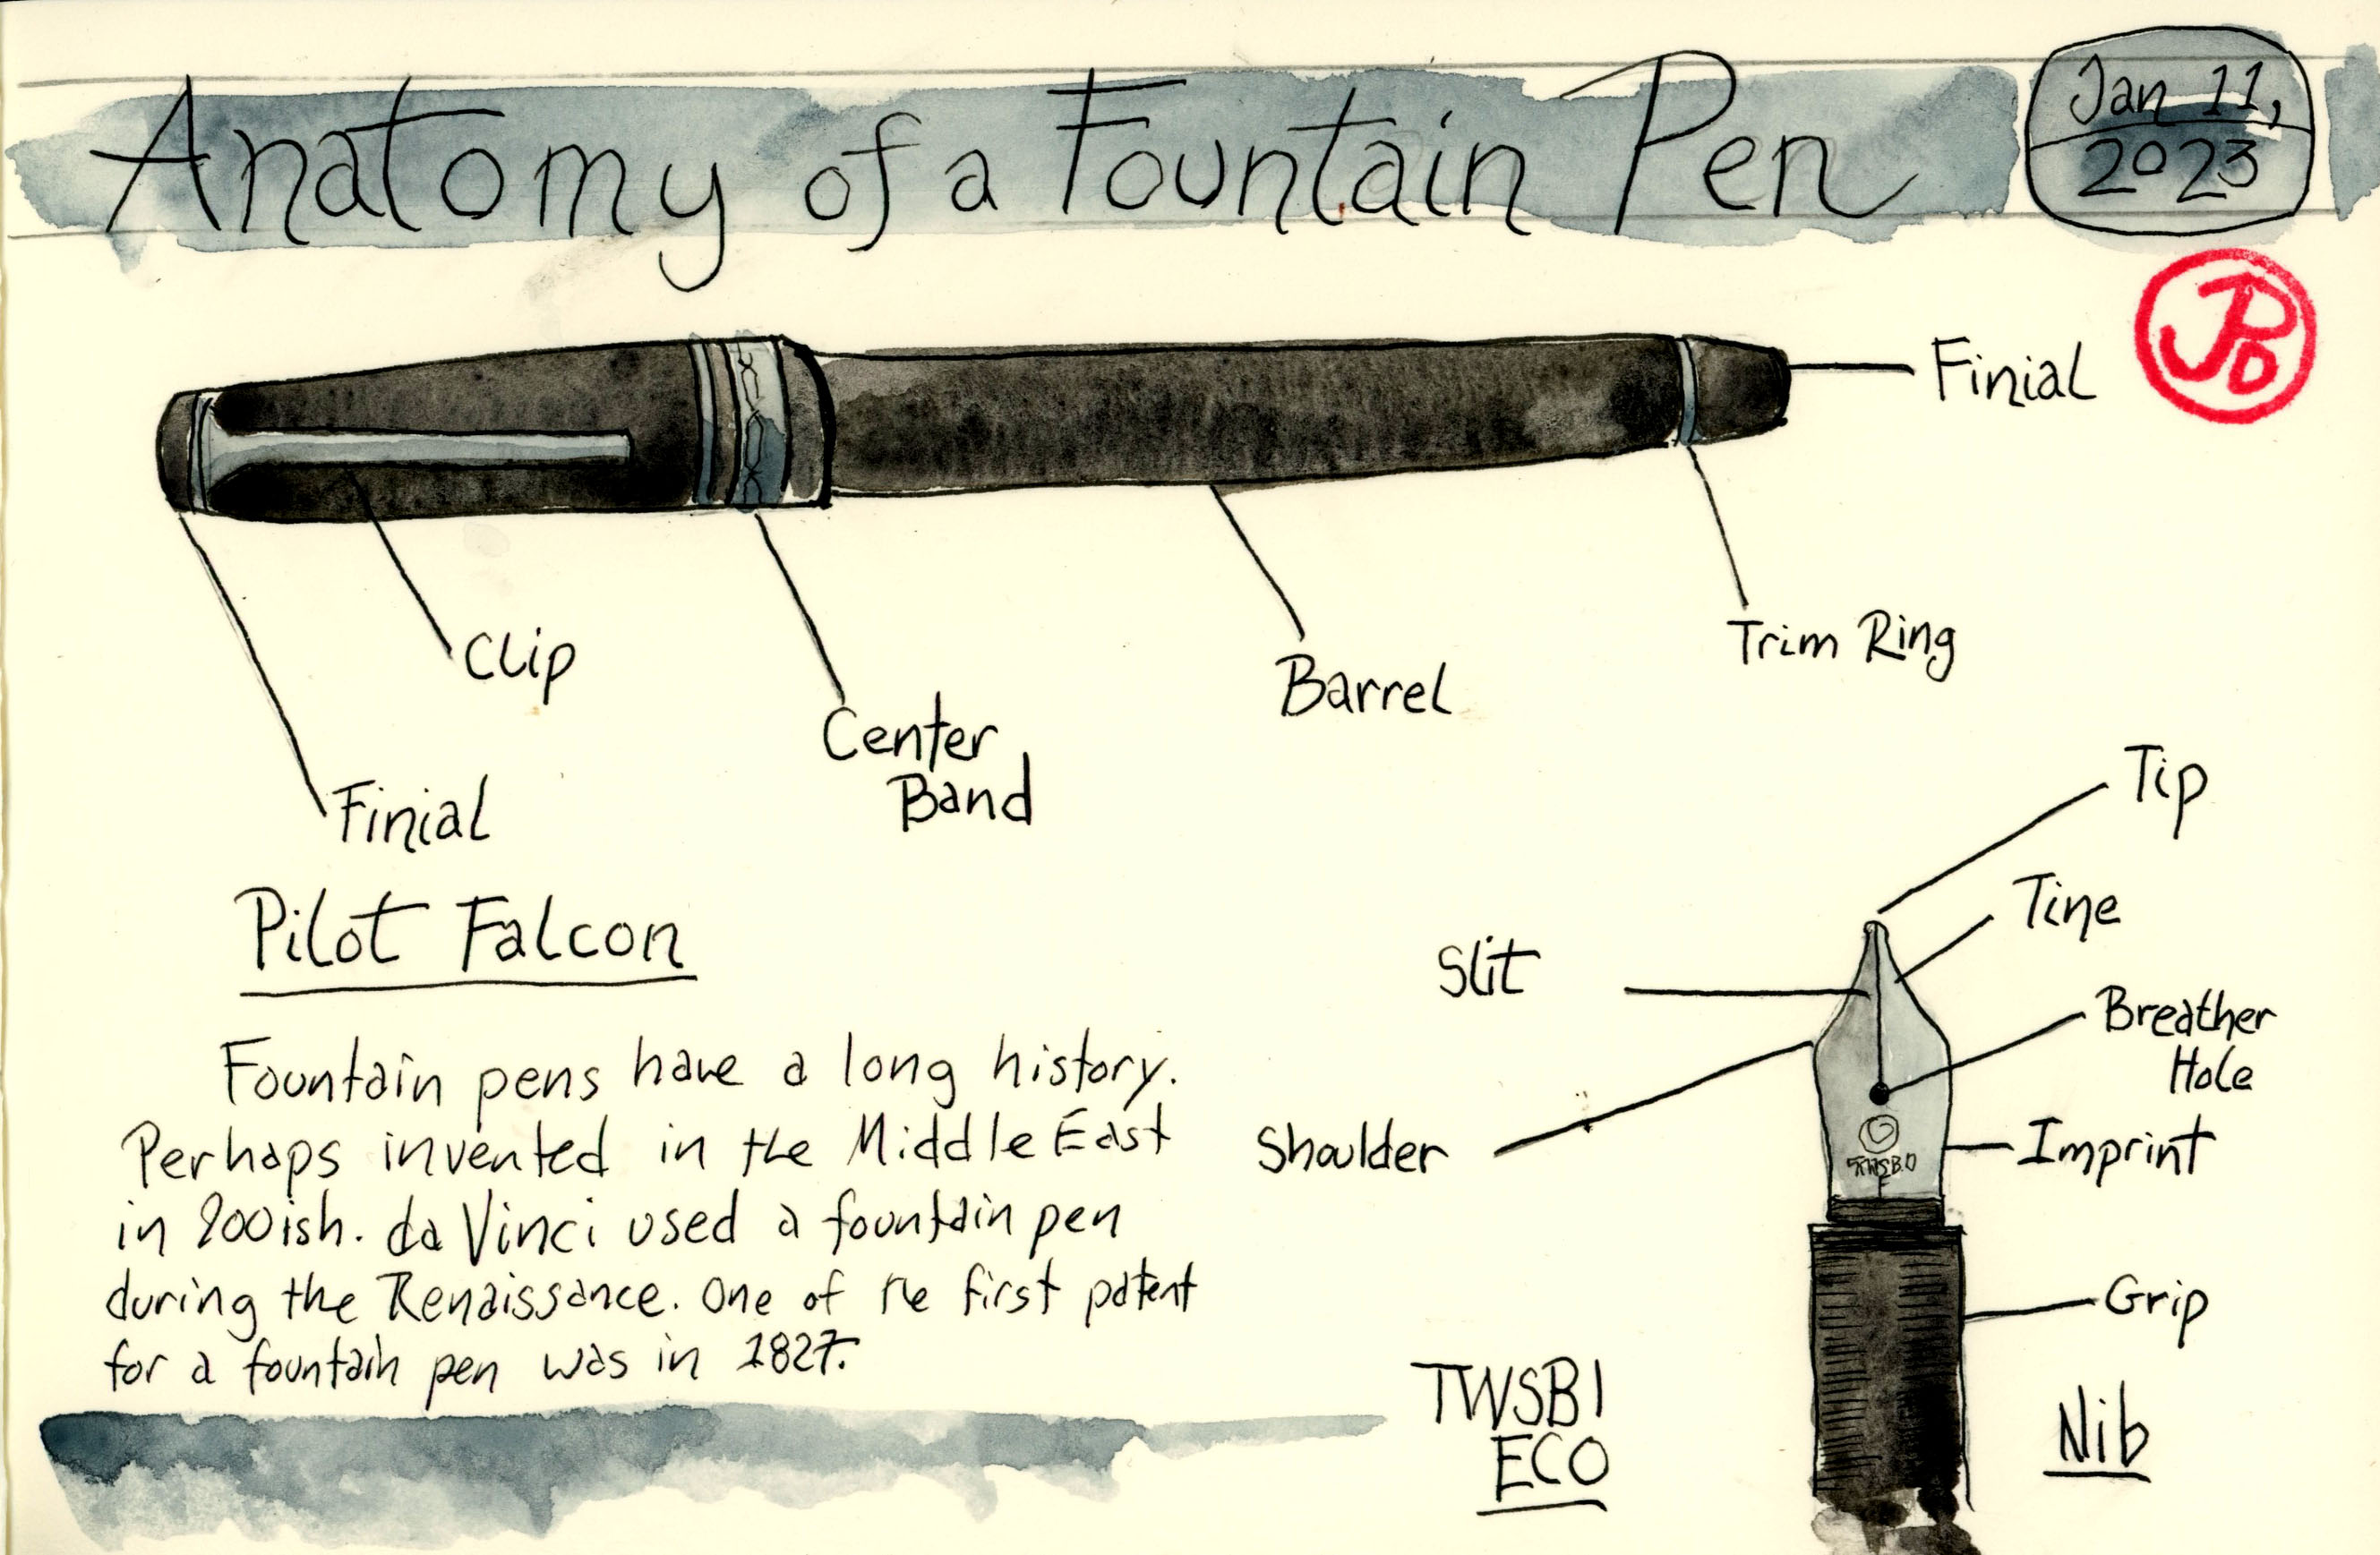 Anatomy of a Fountain Pen
Jan 11,
2023
JPD
Finial
Clip
Center
Band
Barrel
Trim Ring
Finial
Pilot Falcon
Fountain pens have a long history.
Perhaps invented in the Middle East
in 900ish. da Vinci used a fountain pen
during the Renaissance. One of the first patent
for a fountain pen was in 1827.
Tip
Tine
Slit
Breather
Hole
Shoulder
Imprint
TWSBI
F
Grip
TWSBI
ECO
Nib